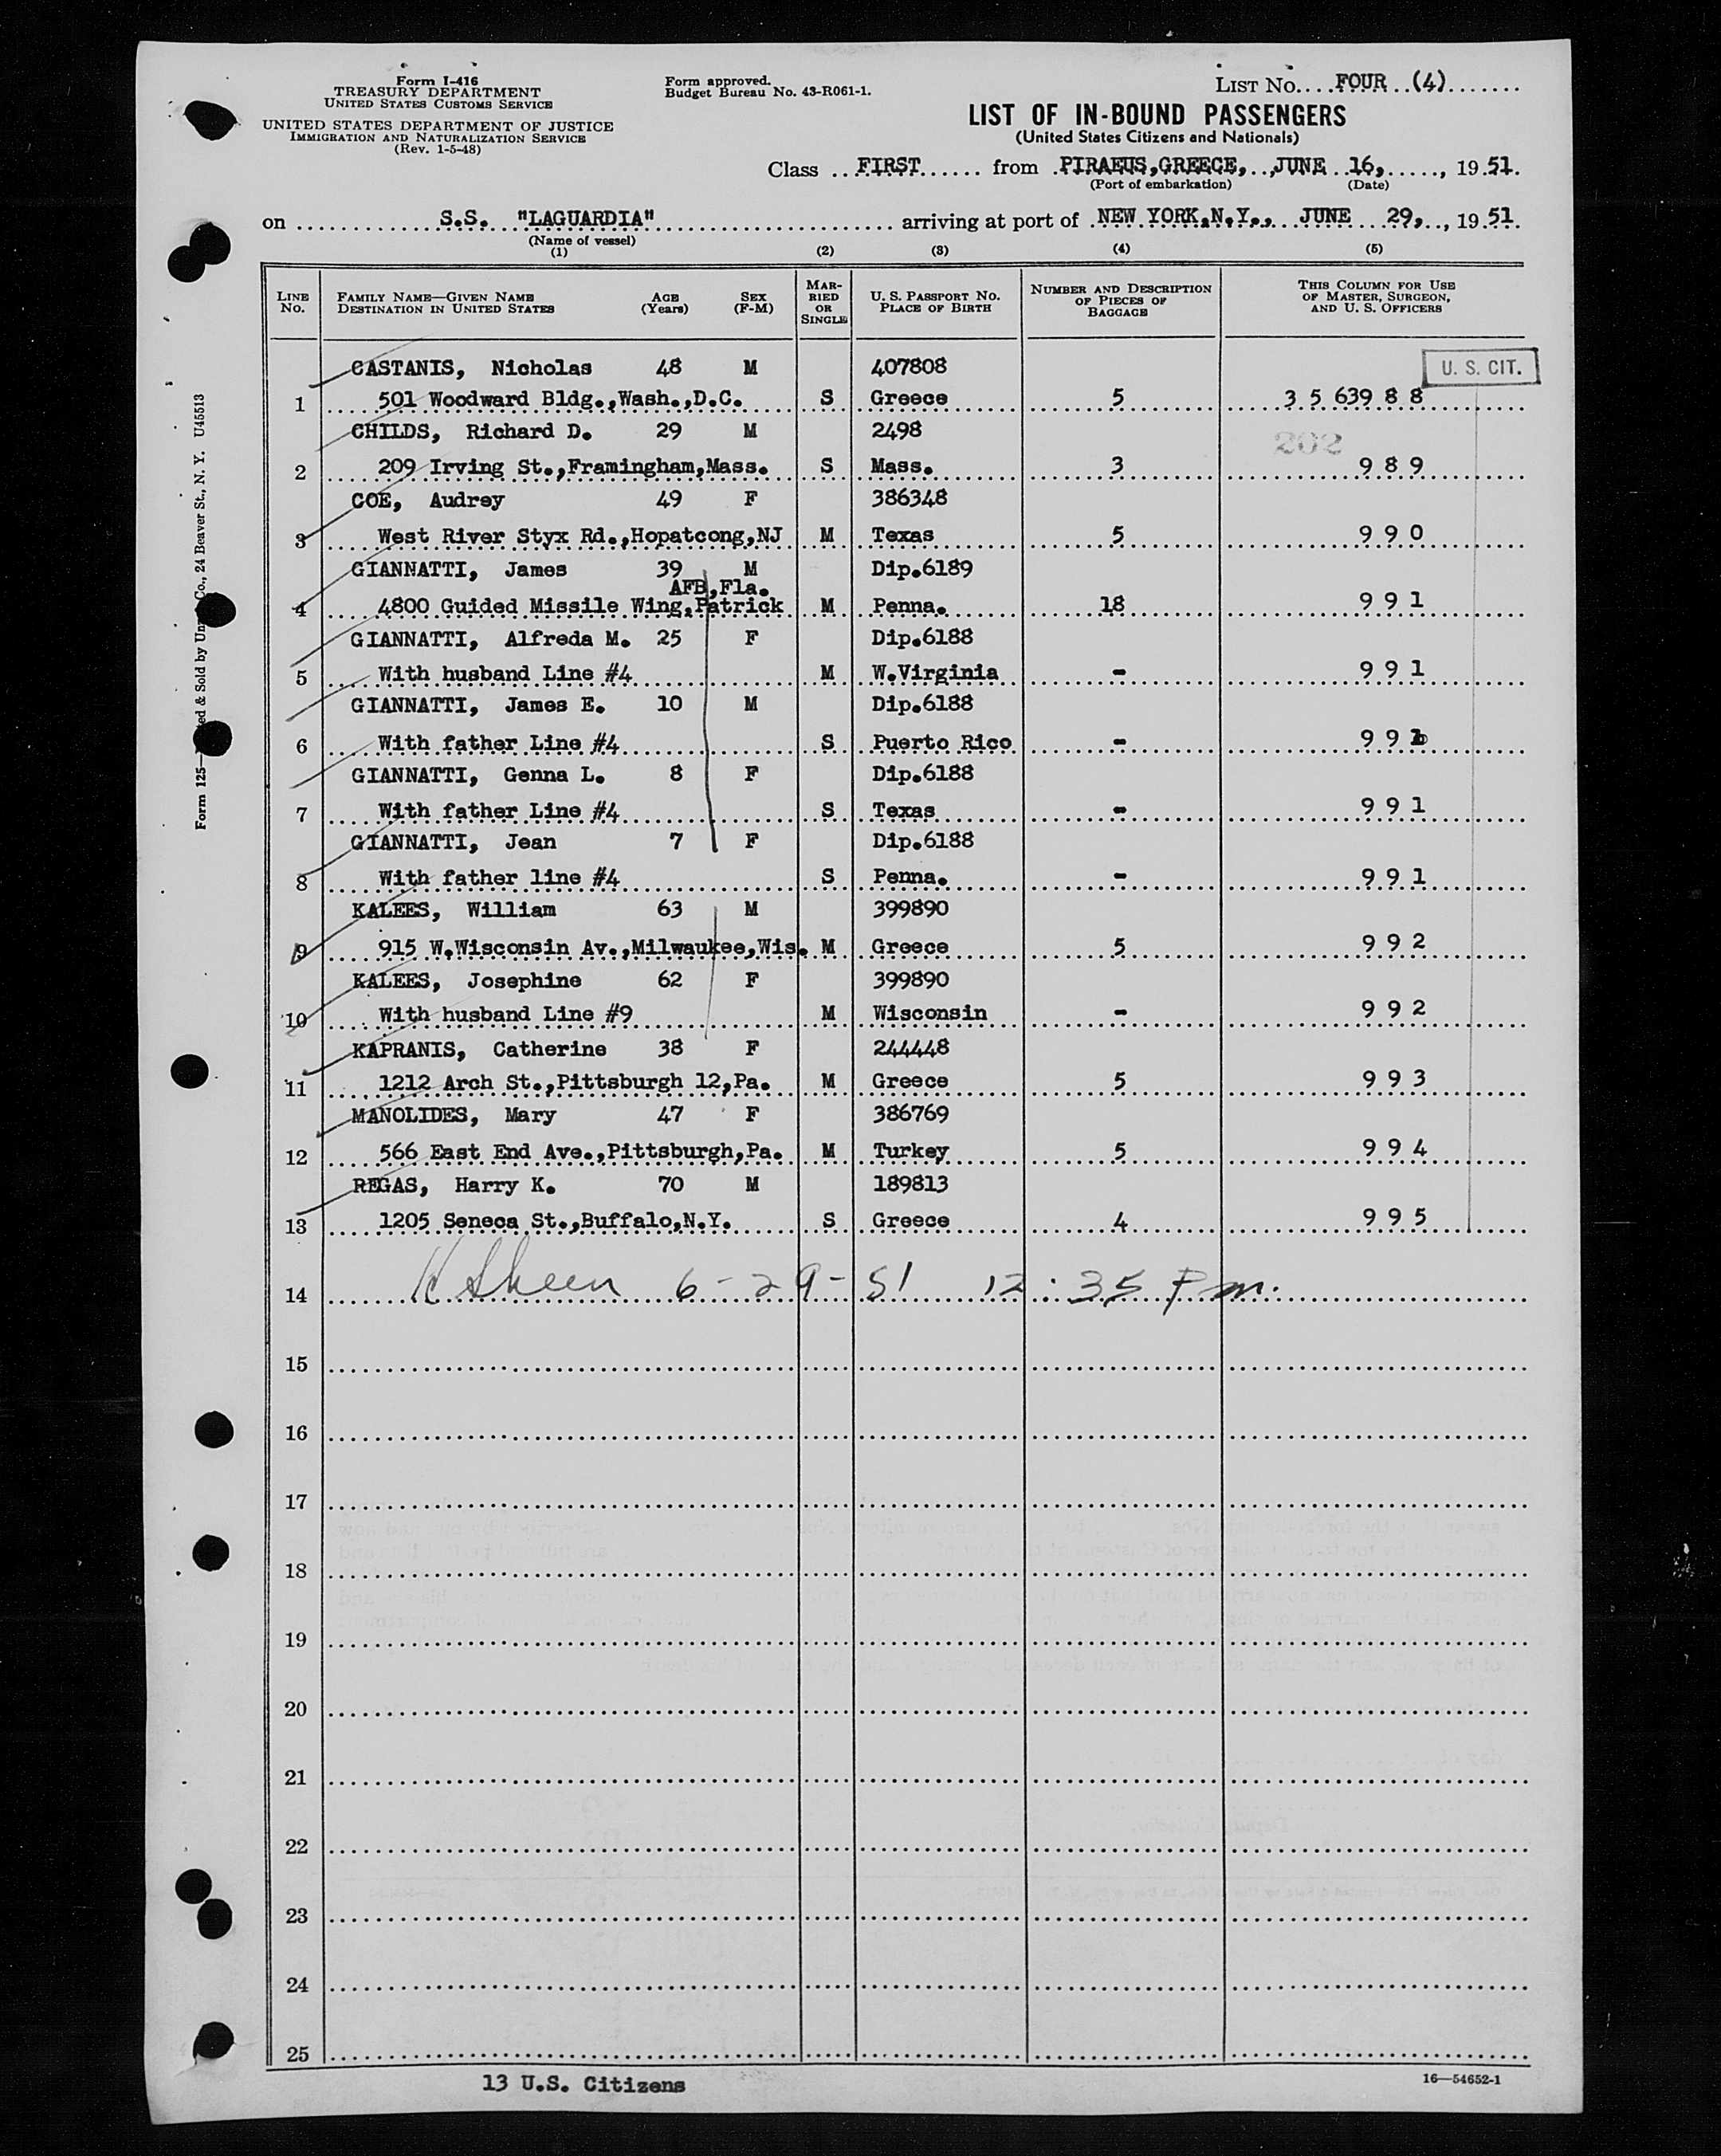 Form I-416
TREASURY DEPARTMENT
UNITED STATES CUSTOMS SERVICE
UNITED STATES DEPARTMENT OF JUSTICE
IMMIGRATION AND NATURALIZATION SERVICE
(Rev. 1-5-48)
Form approved.
Budget Bureau No. 43-R061-1.
LIST No. FOUR (4)
LIST OF IN-BOUND PASSENGERS
(United States Citizens and Nationals)
Class FIRST from PIRAEUS,GREECE, JUNE 16, , 1951.
(Port of embarkation) (Date)
on S.S. "LAGUARDIA" arriving at port of NEW YORK,N.Y., JUNE 29, , 1951.
(Name of vessel)
(1) (2) (3) (4) (5)
LINE No. FAMILY NAME—GIVEN NAME DESTINATION IN UNITED STATES AGE (Years) SEX (F-M) MARRIED OR SINGLE U. S. PASSPORT NO. PLACE OF BIRTH NUMBER AND DESCRIPTION OF PIECES OF BAGGAGE THIS COLUMN FOR USE OF MASTER, SURGEON, AND U. S. OFFICERS
CASTANIS, Nicholas 48 M 407808 U. S. CIT.
1 501 Woodward Bldg.,Wash.,D.C. S Greece 5 3 5 639 8 8
CHILDS, Richard D. 29 M 2498 202
2 209 Irving St.,Framingham,Mass. S Mass. 3 9 8 9
COE, Audrey 49 F 386348
3 West River Styx Rd.,Hopatcong,NJ M Texas 5 9 9 0
GIANNATTI, James 39 M Dip.6189
AFB,Fla.
4 4800 Guided Missile Wing,Patrick M Penna. 18 9 9 1
GIANNATTI, Alfreda M. 25 F Dip.6188
5 With husband Line #4 M W.Virginia - 9 9 1
GIANNATTI, James E. 10 M Dip.6188
6 With father Line #4 S Puerto Rico - 9 9 1
GIANNATTI, Genna L. 8 F Dip.6188
7 With father Line #4 S Texas - 9 9 1
GIANNATTI, Jean 7 F Dip.6188
8 With father line #4 S Penna. - 9 9 1
KALEES, William 63 M 399890
9 915 W.Wisconsin Av.,Milwaukee,Wis. M Greece 5 9 9 2
KALEES, Josephine 62 F 399890
10 With husband Line #9 M Wisconsin - 9 9 2
KAPRANIS, Catherine 38 F 244448
11 1212 Arch St.,Pittsburgh 12,Pa. M Greece 5 9 9 3
MANOLIDES, Mary 47 F 386769
12 566 East End Ave.,Pittsburgh,Pa. M Turkey 5 9 9 4
REGAS, Harry K. 70 M 189813
13 1205 Seneca St.,Buffalo,N.Y. S Greece 4 9 9 5
14 6-29-51 12:35 Pm.
15
16
17
18
19
20
21
22
23
24
25
13 U.S. Citizens
16—54652-1
Form 125— & Sold by Co., 24 Beaver St., N. Y. U45513